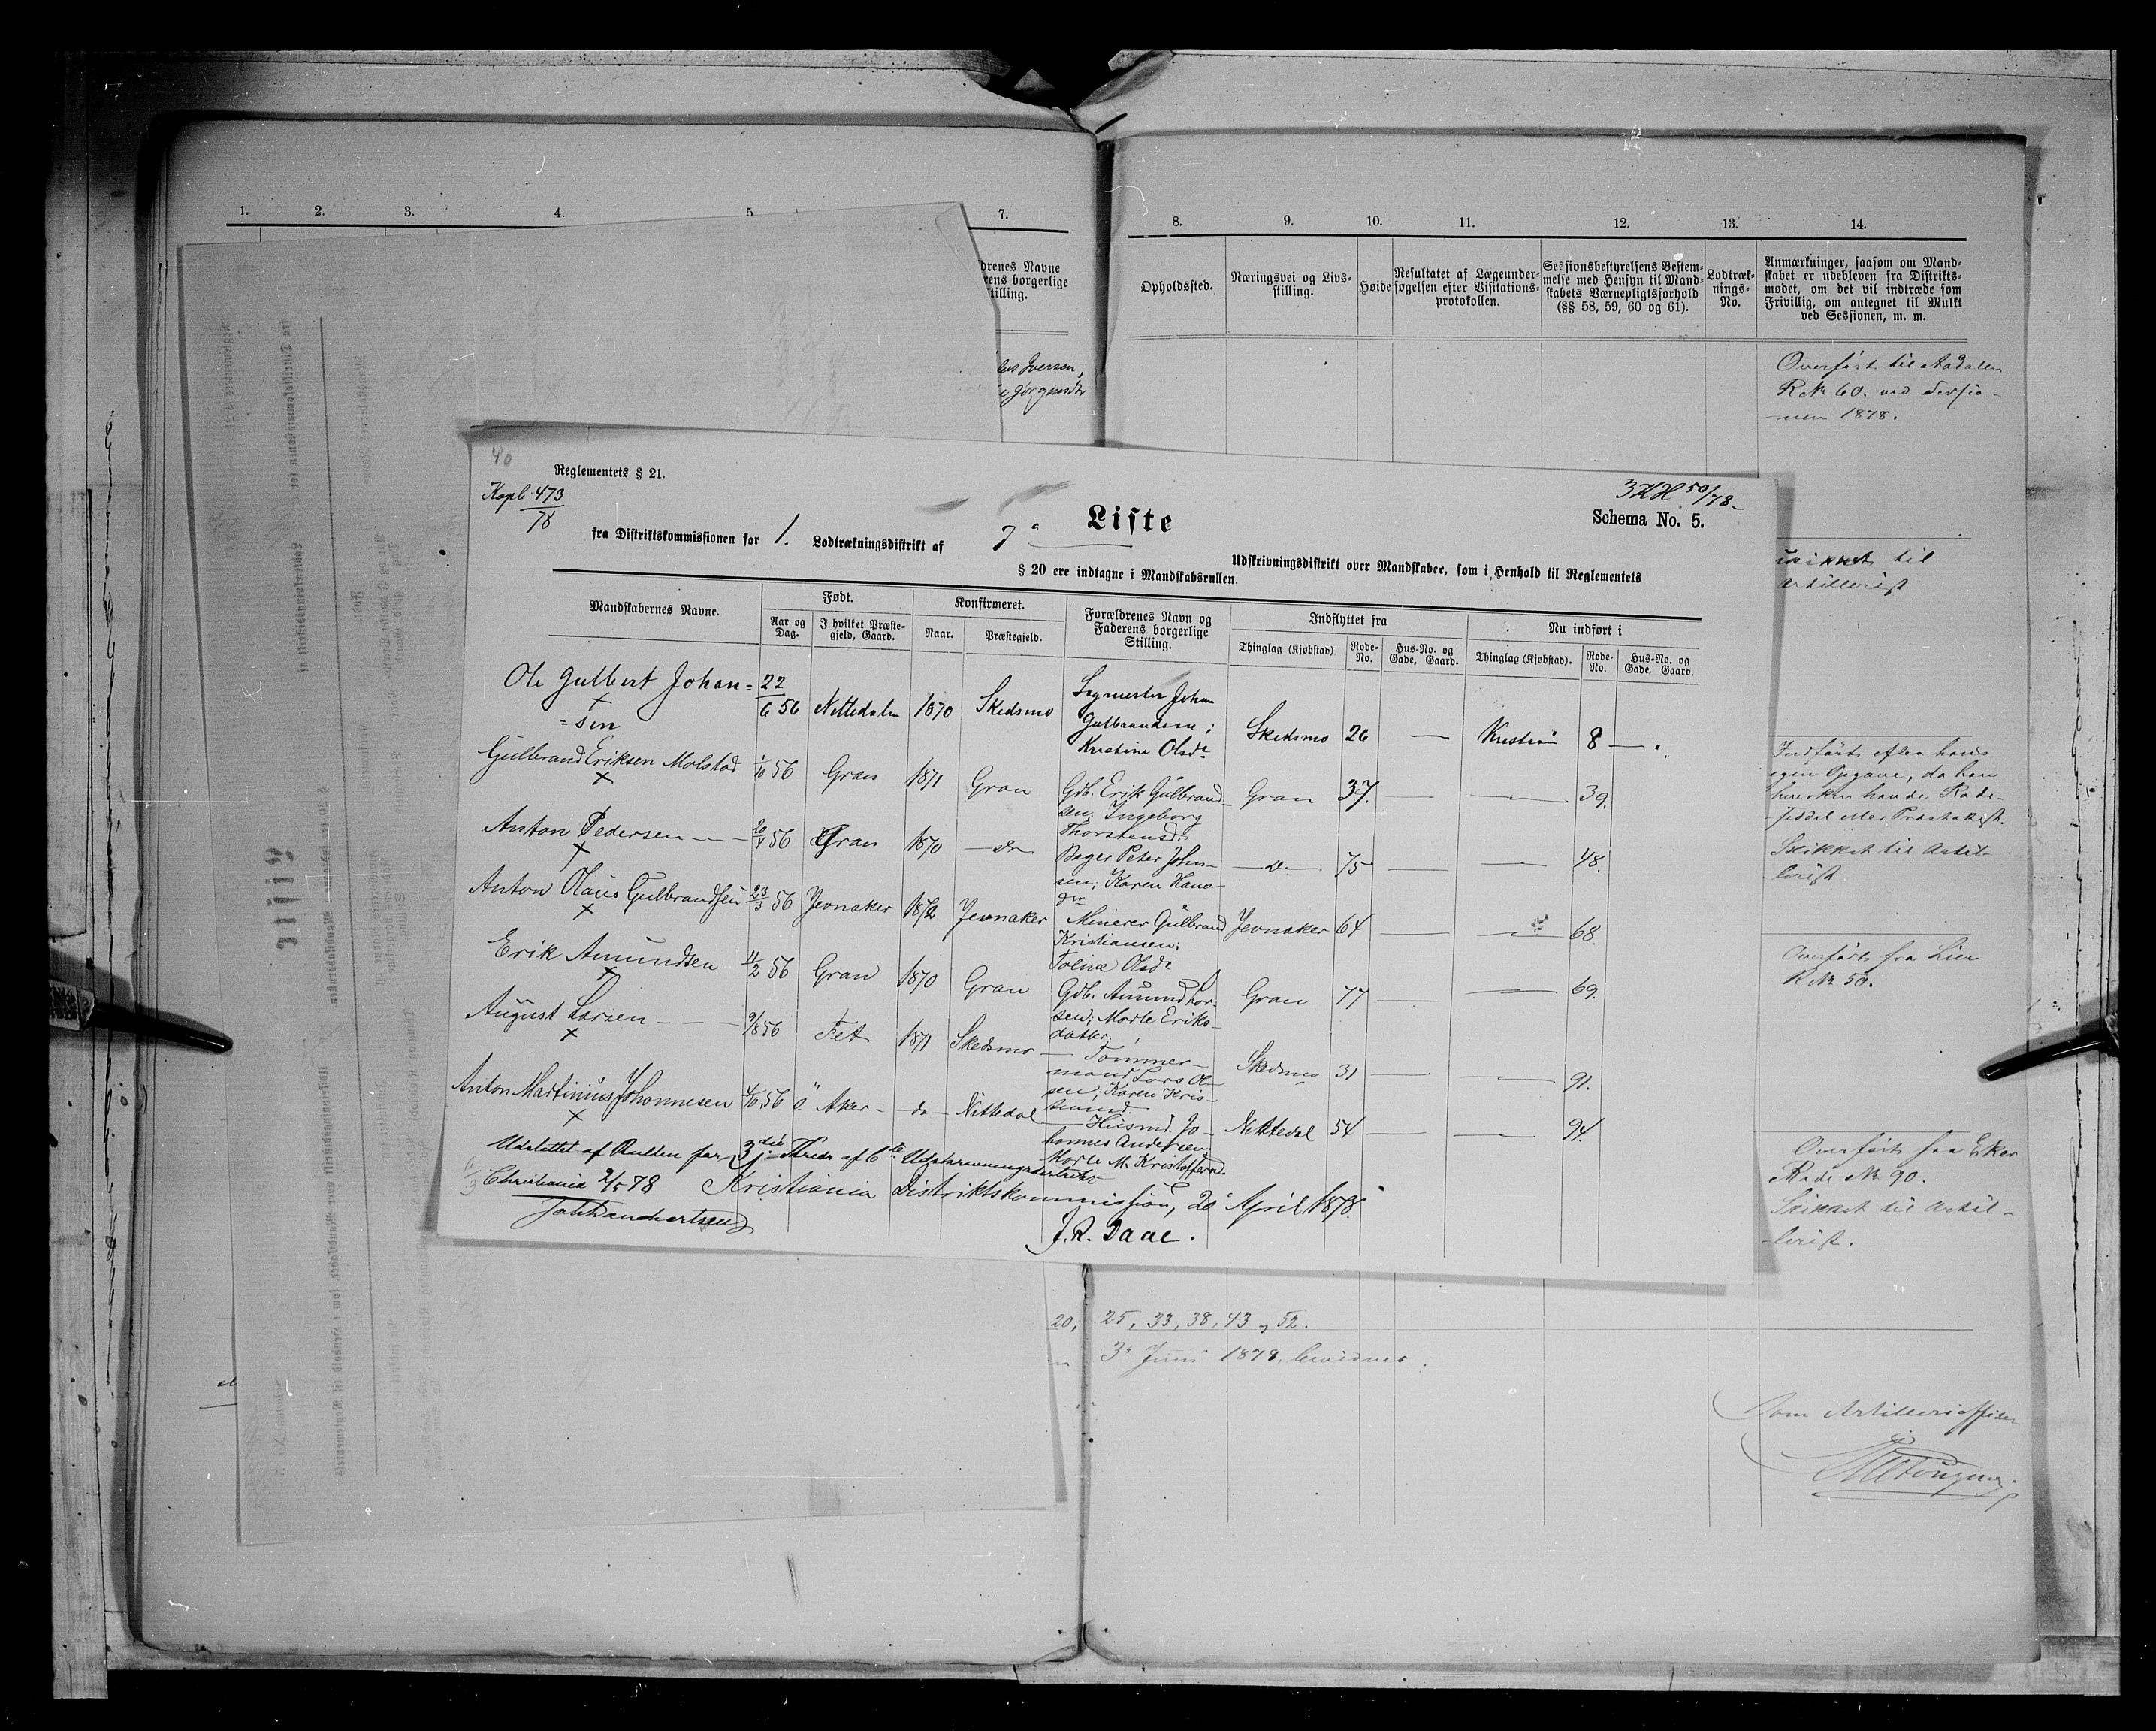 1. 2. 3. 4. 5. 7.
drenes Navne
rens borgerlige
tilling.
Iversen,
8. 9. 10. 11. 12. 13. 14.
Opholdssted.
Næringsvei og Livs-
stilling.
Høide
Resultatet af Lægeunder-
søgelsen efter Visitations-
protokollen.
Sessionsbestyrelsens Bestem-
melse med Hensyn til Mand-
skabets Værnepligtsforhold
(§§ 58, 59, 60 og 61).
Lodtræk-
nings-
No.
Anmærkninger, saasom om Mand-
skabet er udebleven fra Distrikts-
mødet, om det vil indtræde som
Frivillig, om antegnet til Mulkt
ved Sessionen, m. m.
Overført til Aadalen
R No 60. ved Sessio-
-nen 1878.
40
Reglementets § 21.
Kopb. 473
78
50/78-
Schema No. 5.
Liste
fra Distriktskommissionen for 1. Lodtrækningsdistrikt af 7de Udskrivningsdistrikt over Mandskaber, som i Henhold til Reglementets
§ 20 ere indtagne i Mandskabsrullen.
Mandskabernes Navne.
Født.
Aar og
Dag.
I hvilket Præste-
gjeld, Gaard.
Konfirmeret.
Naar.
Præstegjeld.
Forældrenes Navn og
Faderens borgerlige
Stilling.
Indflyttet fra
Thinglag (Kjøbstad)
Rode-
No.
Hus-No. og
Gade, Gaard.
Nu indført i
Thinglag (Kjøbstad).
Rode-
No.
Hus-No. og
Gade, Gaard.
Ole Gulbert Johan=
=sen
22/6 56 Nittedalen 1870 Skedsmo
Sagmester Johan
Gulbrandsen;
Kristine Olsdr
Skedsmo 26 — Kristia 8 —
Gulbrand Eriksen Molstad 1/10 56 Gran 1871 Gran
Gdb. Erik Gulbrand-
sen; Ingeborg
Thorstensdr
Gran 37. — — 39.
Anton Pedersen — 20/4 56 Gran 1870 — do
Bager Peter John-
sen; Karen Hans-
dr
— do — 75 — — 48.
Anton Olaus Gulbrandsen 23/3 56 Jevnaker 1872 Jevnaker
Minerer Gulbrand
Kristiansen;
Toline Olsdr
Jevnaker 64 — — 68.
Erik Amundsen 11/2 56 Gran 1870 Gran
Gdb. Amund Lar-
sen; Marte Eriks-
datter
Gran 77 — — 69.
August Larsen — 9/8 56 Fet 1871 Skedsmo
— Tømmer-
mand Lars Ol-
sen; Karen Kris-
tiansd.
Skedsmo 31 — — 91.
Anton Martinius Johannesen 4/10 56 Ø. Aker - do - Nittedal
— Husmd. Jo-
hannes Andersen
Marte M. Kristoffersd.
Nittedal 54 — — 94.
Udslettet af Rullen for 3die af 6te Udskrivningsdistrikt
Christiania 2/5 78
Kristiania Distriktskommission, 20 April 1878.
J. A. Daae.
skikket til
Artillerist
Indført efter hans
egen Opgave, da han
hverken havde Rode-
-seddel eller Præsteattest.
Skikket til Artil-
lerist
Overført fra Lier
R No 50.
Overført fra Eker
Rode No 90.
Skikket til Artil-
lerist.
20, 25, 33, 38, 43 og 52.
3die Juni 1878, bevidnes.
Som Artilleriofficer